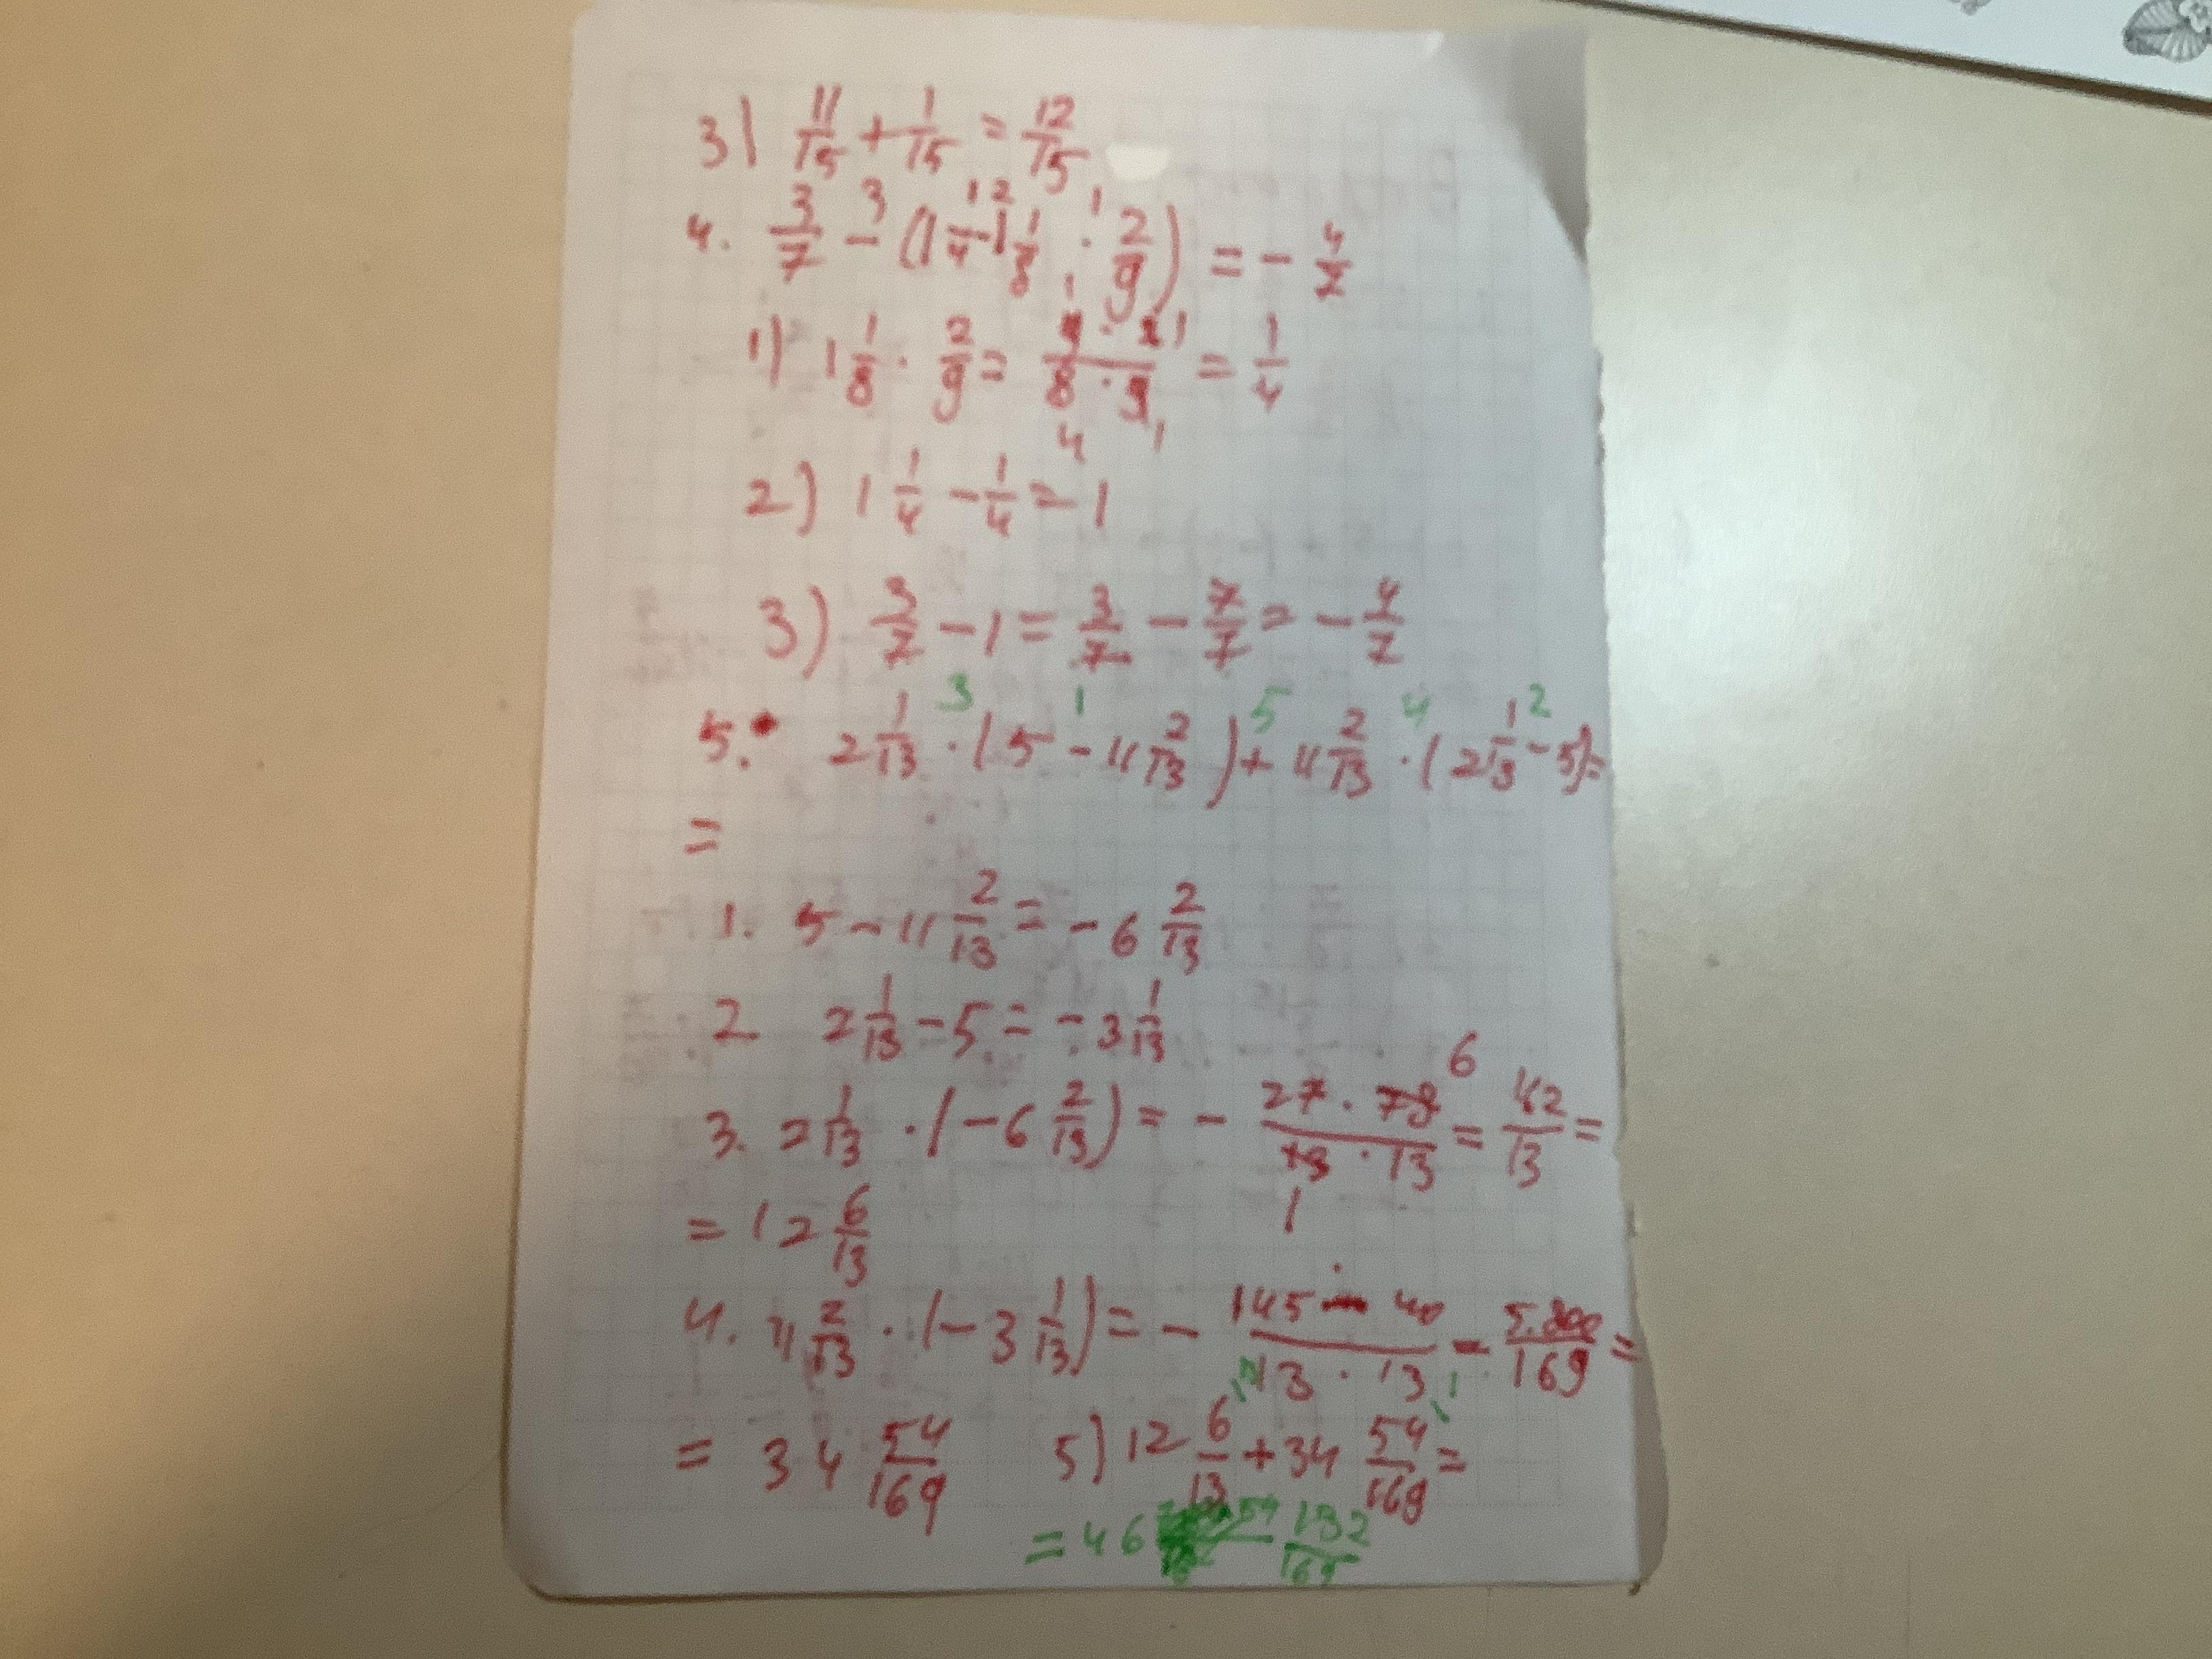 3) 11/15 + 1/15 = 12/15
4. 3/7 - (1 1/4 - 1 1/8 · 2/9) = - 4/7
1) 1 1/8 · 2/9 = 9 · 2 / 8 · 9 = 1/4
2) 1 1/4 - 1/4 = 1
3) 3/7 - 1 = 3/7 - 7/7 = - 4/7
5. 2 1/13 · (5 - 11 2/13) + 11 2/13 · (2 1/13 - 5) =
=
1. 5 - 11 2/13 = - 6 2/13
2. 2 1/13 - 5 = - 3 1/13
3. 2 1/13 · (- 6 2/13) = - 27 · 78 / 13 · 13 = 162/13 =
= 12 6/13
4. 11 2/13 · (- 3 1/13) = - 145 · 40 / 13 · 13 = 5.800/169 =
= 34 54/169 5) 12 6/13 + 34 54/169 =
= 46 132/169